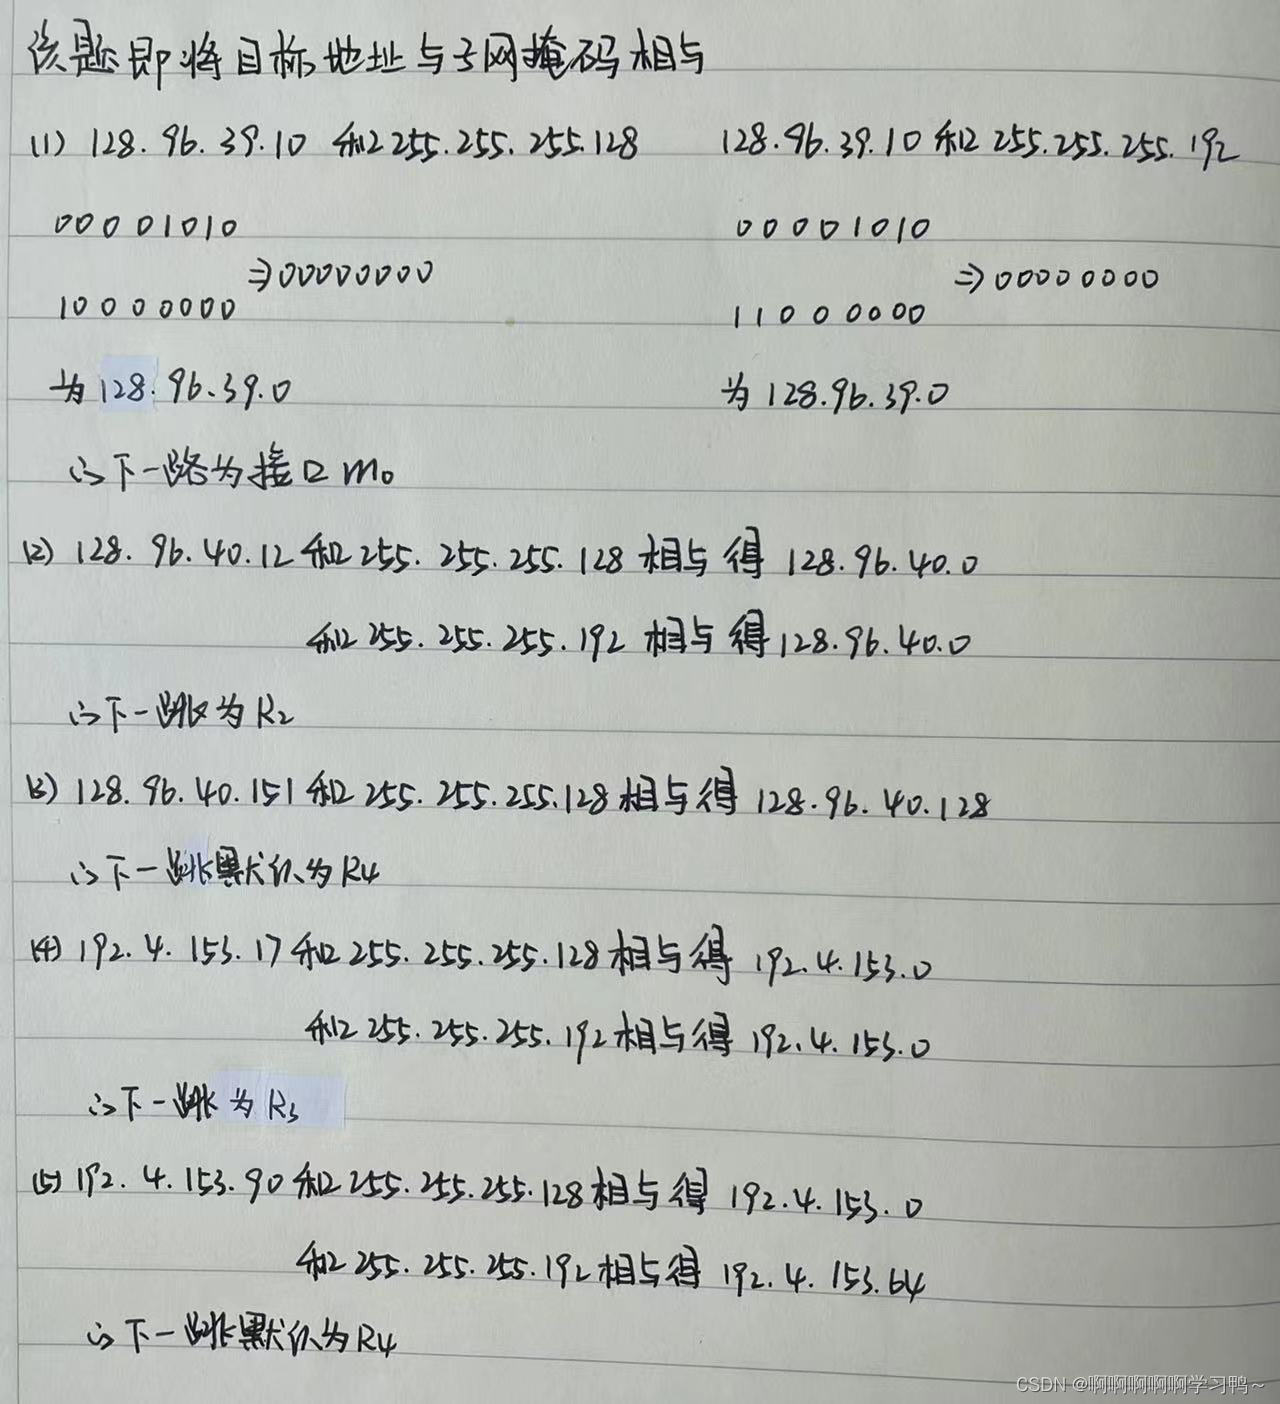 该题即将目标地址与子网掩码相与
(1) 128.96.39.10 和 255.255.255.128 128.96.39.10 和 255.255.255.192
00001010 00001010
⇒00000000 ⇒00000000
10000000 11000000
为 128.96.39.0 为 128.96.39.0
∴下一路为接口 m0
(2) 128.96.40.12 和 255.255.255.128 相与得 128.96.40.0
和 255.255.255.192 相与得 128.96.40.0
∴下一跳为 R2
(3) 128.96.40.151 和 255.255.255.128 相与得 128.96.40.128
∴下一跳默认为 R4
(4) 192.4.153.17 和 255.255.255.128 相与得 192.4.153.0
和 255.255.255.192 相与得 192.4.153.0
∴下一跳为 R3
(5) 192.4.153.90 和 255.255.255.128 相与得 192.4.153.0
和 255.255.255.192 相与得 192.4.153.64
∴下一跳默认为 R4
CSDN @啊啊啊啊啊学习鸭~